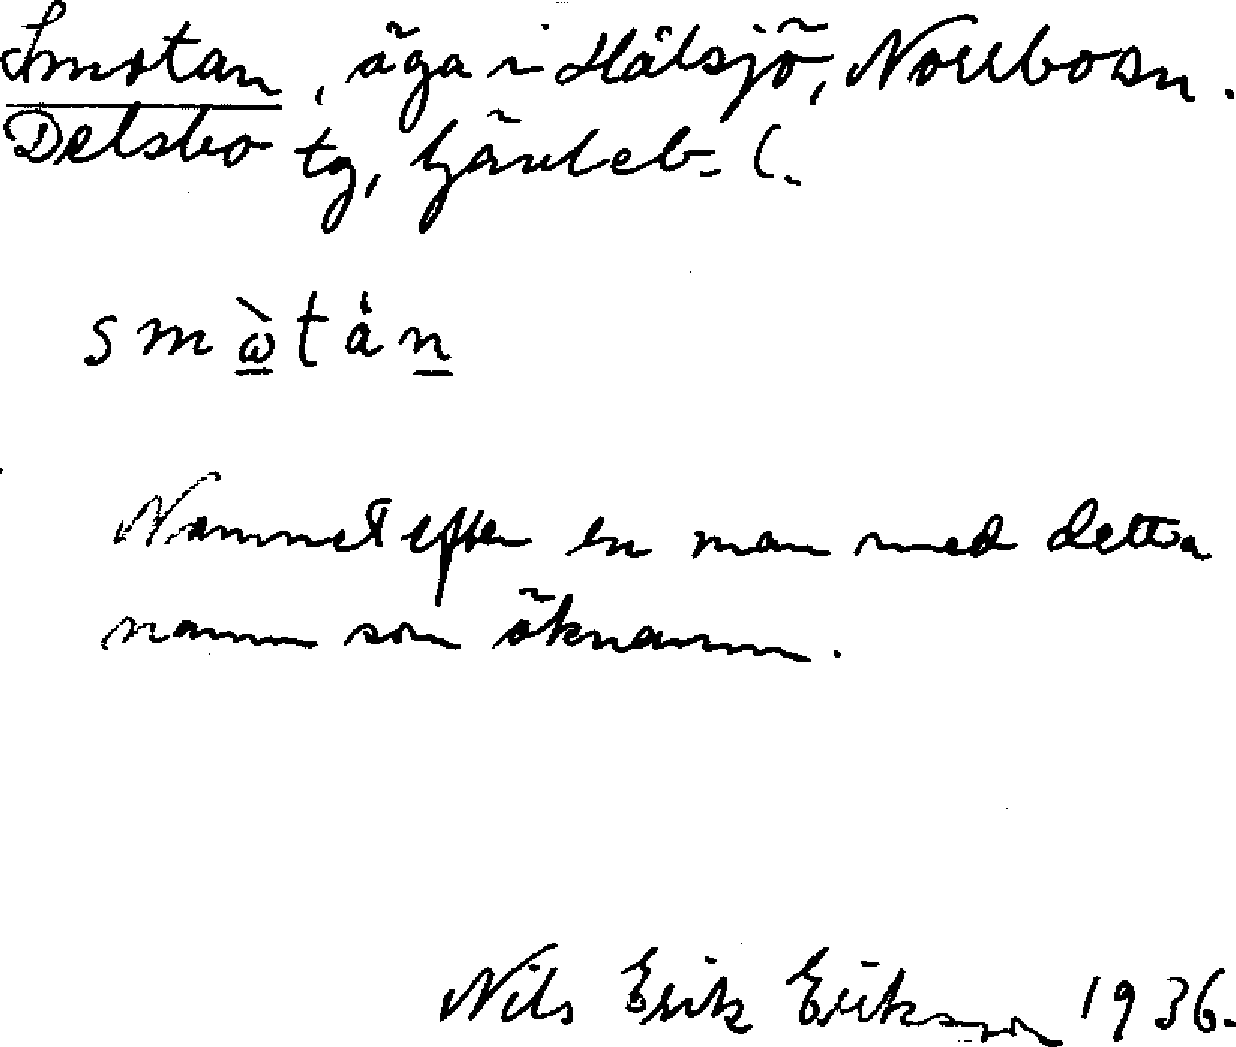 Smotan, äga i Hålsjö, Norrbo sn.
Delsbo tg, Gävleb. l.
smὼtȧn
Namnet efter en man med detta
namn som öknamn.
Nils Erik Eriksson 1936.